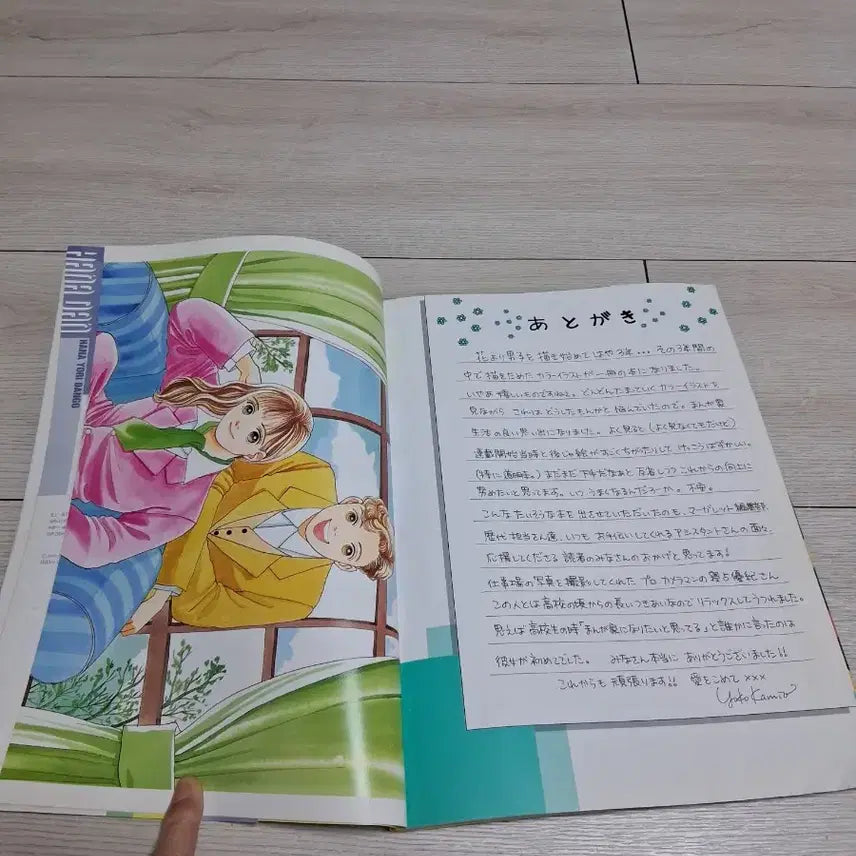 Hana Dan
HANA YORI DANGO
あとがき
花より男子を描き始めてはや3年・・・その3年間の
中で描きためたカラーイラストが一冊の本になりました。
いやあ嬉しいものですねえ。どんどんたまっていくカラーイラストを
見ながらこれはどうしたもんかと悩んでいたので。まんが家
生活の良い思い出になりました。よく見ると(よく見なくてもだけど)
連載開始当時と後じゃ絵がすごくちがったりしてけっこうはずかしい。
(特に道明寺。)まだまだ下手だなあと反省しつつこれからの向上に
努めたいと思ってます。いつうまくなるんだろーか。不安。
こんなたいそうな本を出させていただいたのも、マーガレット編集部、
歴代担当さん達、いつもお手伝いしてくれるアシスタントさんの面々、
応援してくださる読者のみなさんのおかげと思ってます!
仕事場の写真を撮影してくれたプロカメラマンの 優紀さん
この人とは高校の頃からの長いつきあいなのでリラックスしてうつれました。
思えば高校生の時「まんが家になりたいと思ってる」と誰かに言ったのは
彼女が初めてでした。 みなさん本当にありがとうございました!!
これからも頑張ります!! 愛をこめて ×××
Yoko Kamio